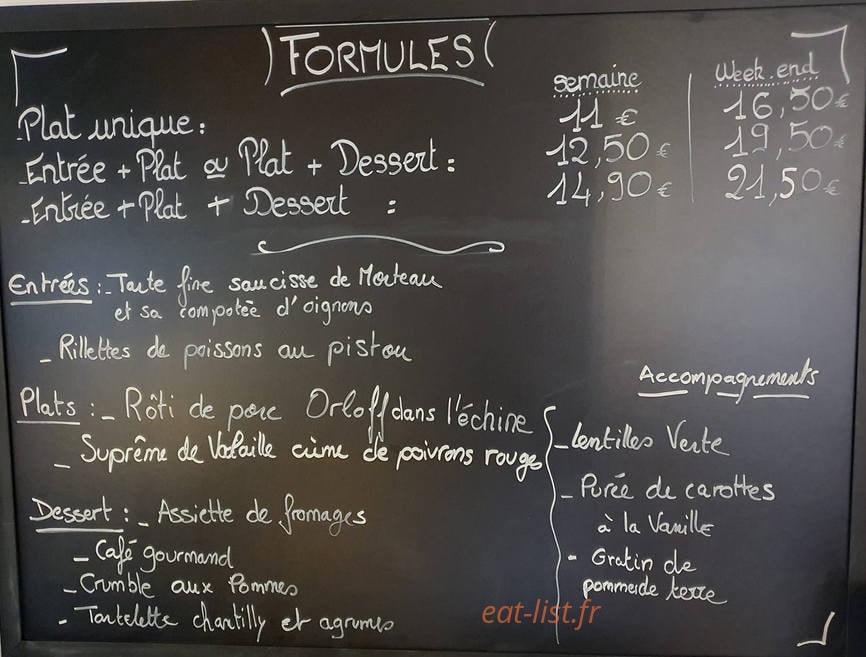 FORMULES
semaine
Week.end
- Plat unique :
11 €
16,50€
- Entrée + Plat ou Plat + Dessert :
12,50 €
19,50€
- Entrée + Plat + Dessert :
14,90€
21,50€
Entrées : - Tarte fine saucisse de Morteau
et sa compotée d'oignons
- Rillettes de poissons au pistou
Plats : - Rôti de porc Orloff dans l'échine
- Suprême de Volaille crème de poivrons rouge
Dessert : - Assiette de fromages
- Café gourmand
- Crumble aux Pommes
- Tartelette chantilly et agrumes
Accompagnements
- lentilles Verte
- Purée de carottes
à la Vanille
- Gratin de
pomme de terre
eat-list.fr